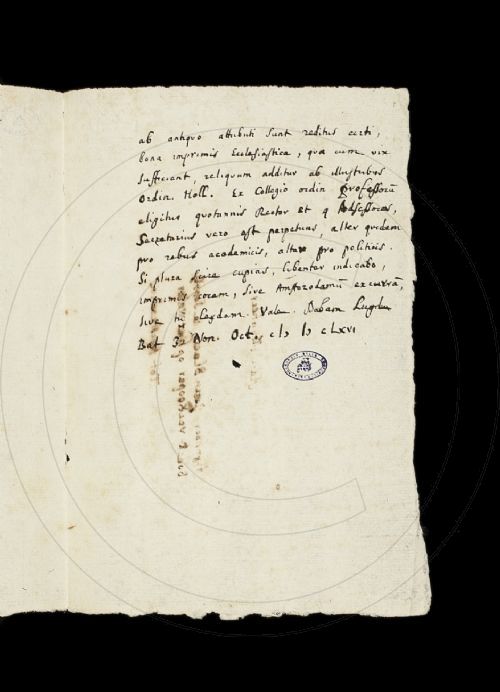 ab antiquo attributi sunt reditus certi,
bona imprimis Ecclesiastica, quæ cum vix
sufficiant, reliquum additur ab illustribus
Ordin. Holl. Ex Collegio ordin Professorū
eligitur quotannis Rector et 4 Adsessores,
Secretarius vero est perpetuus, alter quidem
pro rebus academicis, alter pro politicis.
Si plura scire cupias, libenter indicabo,
imprimis coram, sive Amstodamū excurrā,
sive tu Leydam. Vale. Dabam Lugdun
Bat 3 Non. Oct. cIↄ Iↄ cLXVI